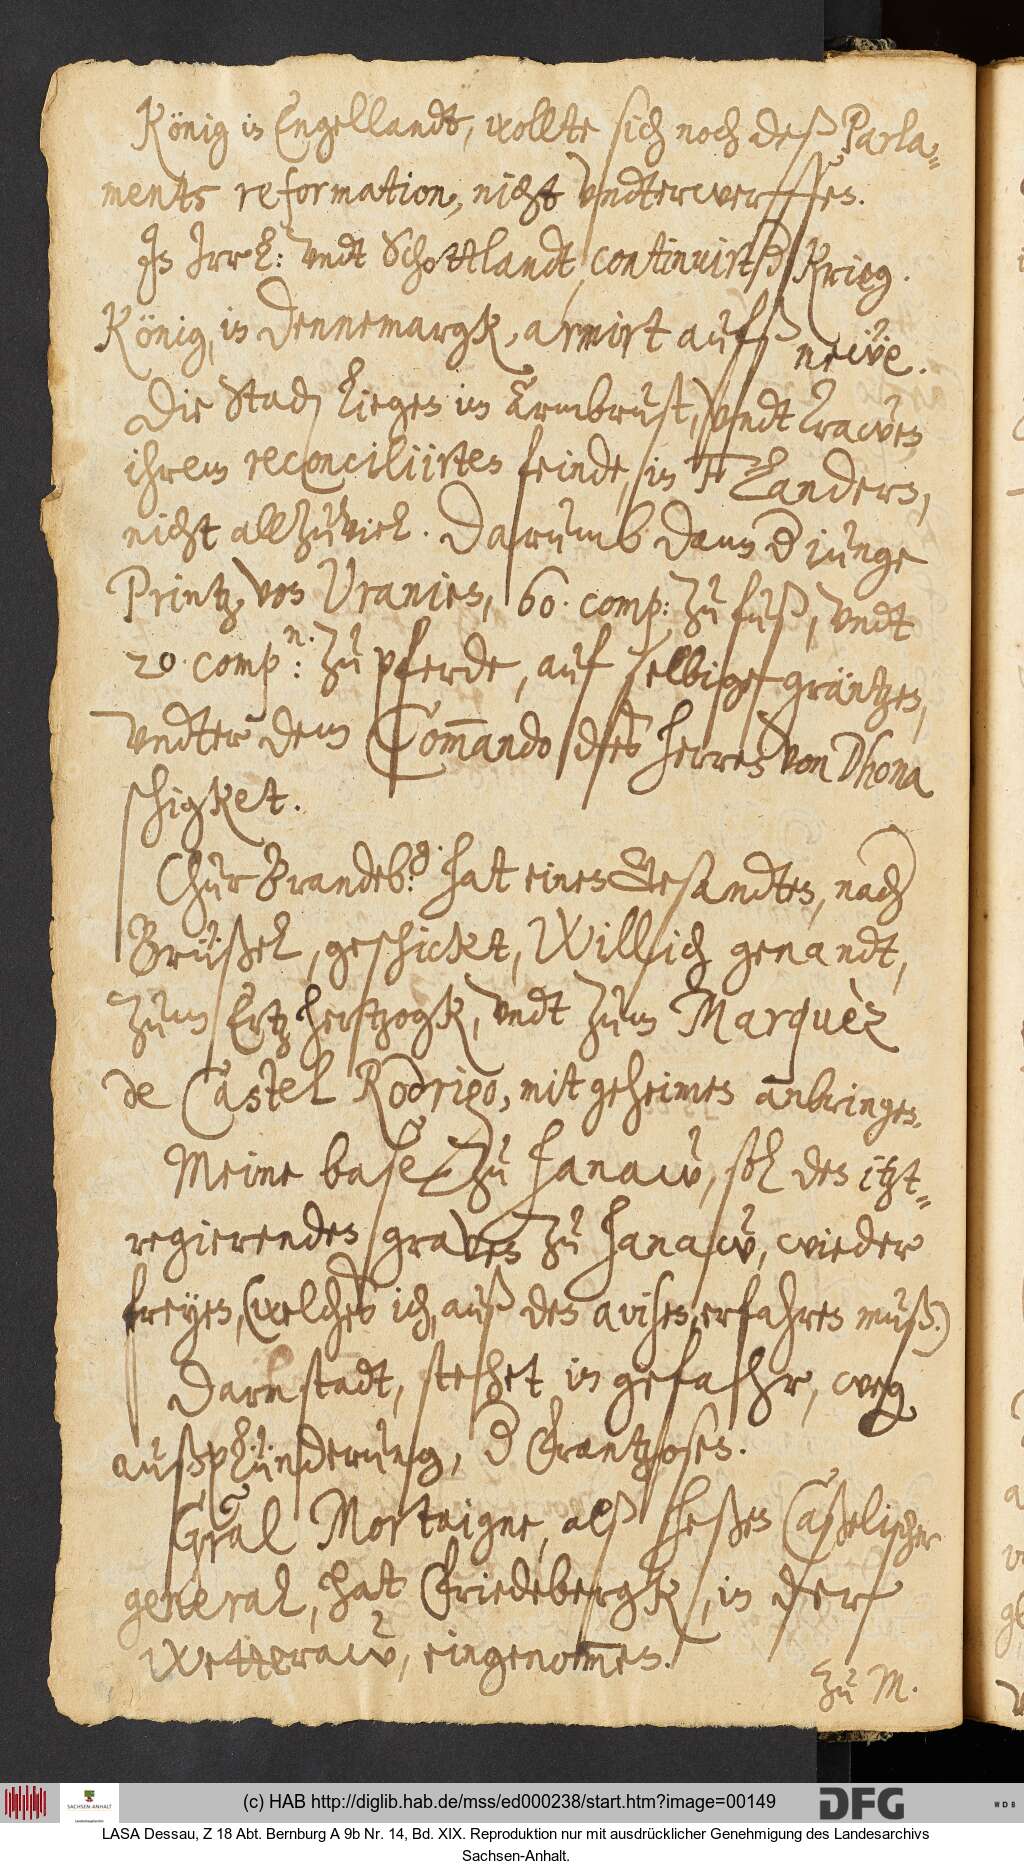 König in Engellandt, wollte sich noch deß Parla-
ments reformation, nicht vndterwerffen.
In Irrl: vndt Schottlandt continuirt der Krieg.
König, in Dennemargk, armirt aufß neẅe.
Die Stadt liegen im Armbrust, vndt trawen
ihrem reconciliirten feinde, in Flandern,
nicht allzuviel. Darumb dann der junge
Printz von Vranien, 60 comp: zu fuß, vndt
20 comp.n: zu pferde, auf selbige gräntzen,
vndter dem Com̅ando des herren von Dhona
schigket.
Chur Brandeb.g: hat einen Gesandten, nach
Brüßel, geschicket, Willich genandt,
zum Ertzhertzogk, vndt zum Marquèz
de Castel Rodrigo, mit geheimen anbringen.
Meine base zu Hanaw, soll den itzt-
regierenden graven zu Hanaw, wieder
freyen, (welches ich, auß den avisen, erfahren muß.)
Darmstadt, stehet in gefahr, weg
außplünderung, der Frantzosen.
G̅ral Mortaigne, alß heßen Caßelischer
general, hat Friedebergk, in der
Wetteraw, eingenom̅en.
Zu M.
(c) HAB http://diglib.hab.de/mss/ed000238/start.htm?image=00149
SACHSEN-ANHALT
DFG
WDB
LASA Dessau, Z 18 Abt. Bernburg A 9b Nr. 14, Bd. XIX. Reproduktion nur mit ausdrücklicher Genehmigung des Landesarchivs
Sachsen-Anhalt.